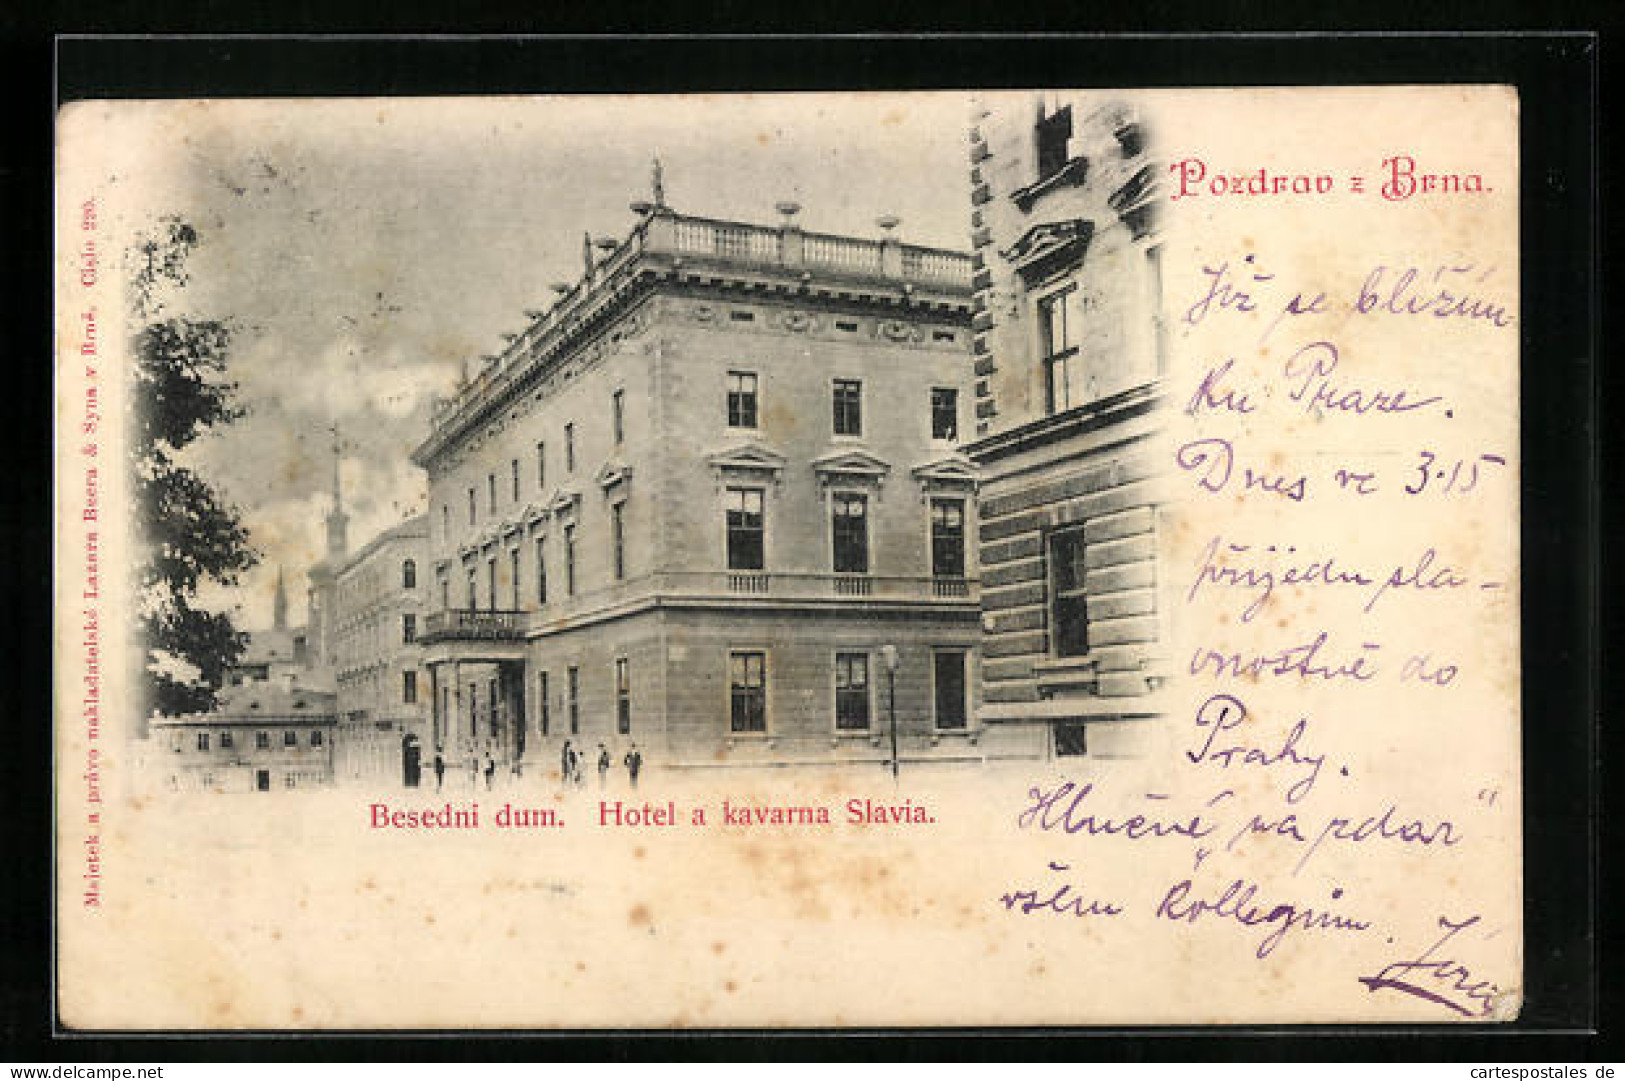 Pozdrav z Brna.
Již se blížím
ku Praze.
Dnes ve 3·15
přijedu sla-
vnostně do
Prahy.
Hlučné „na zdar"
všem kollegům.
Besedni dum. Hotel a kavarna Slavia.
Majetek a právo nakladatelské Lazara Beera & Syna v Brně. Cislo 220.
cartespostales de